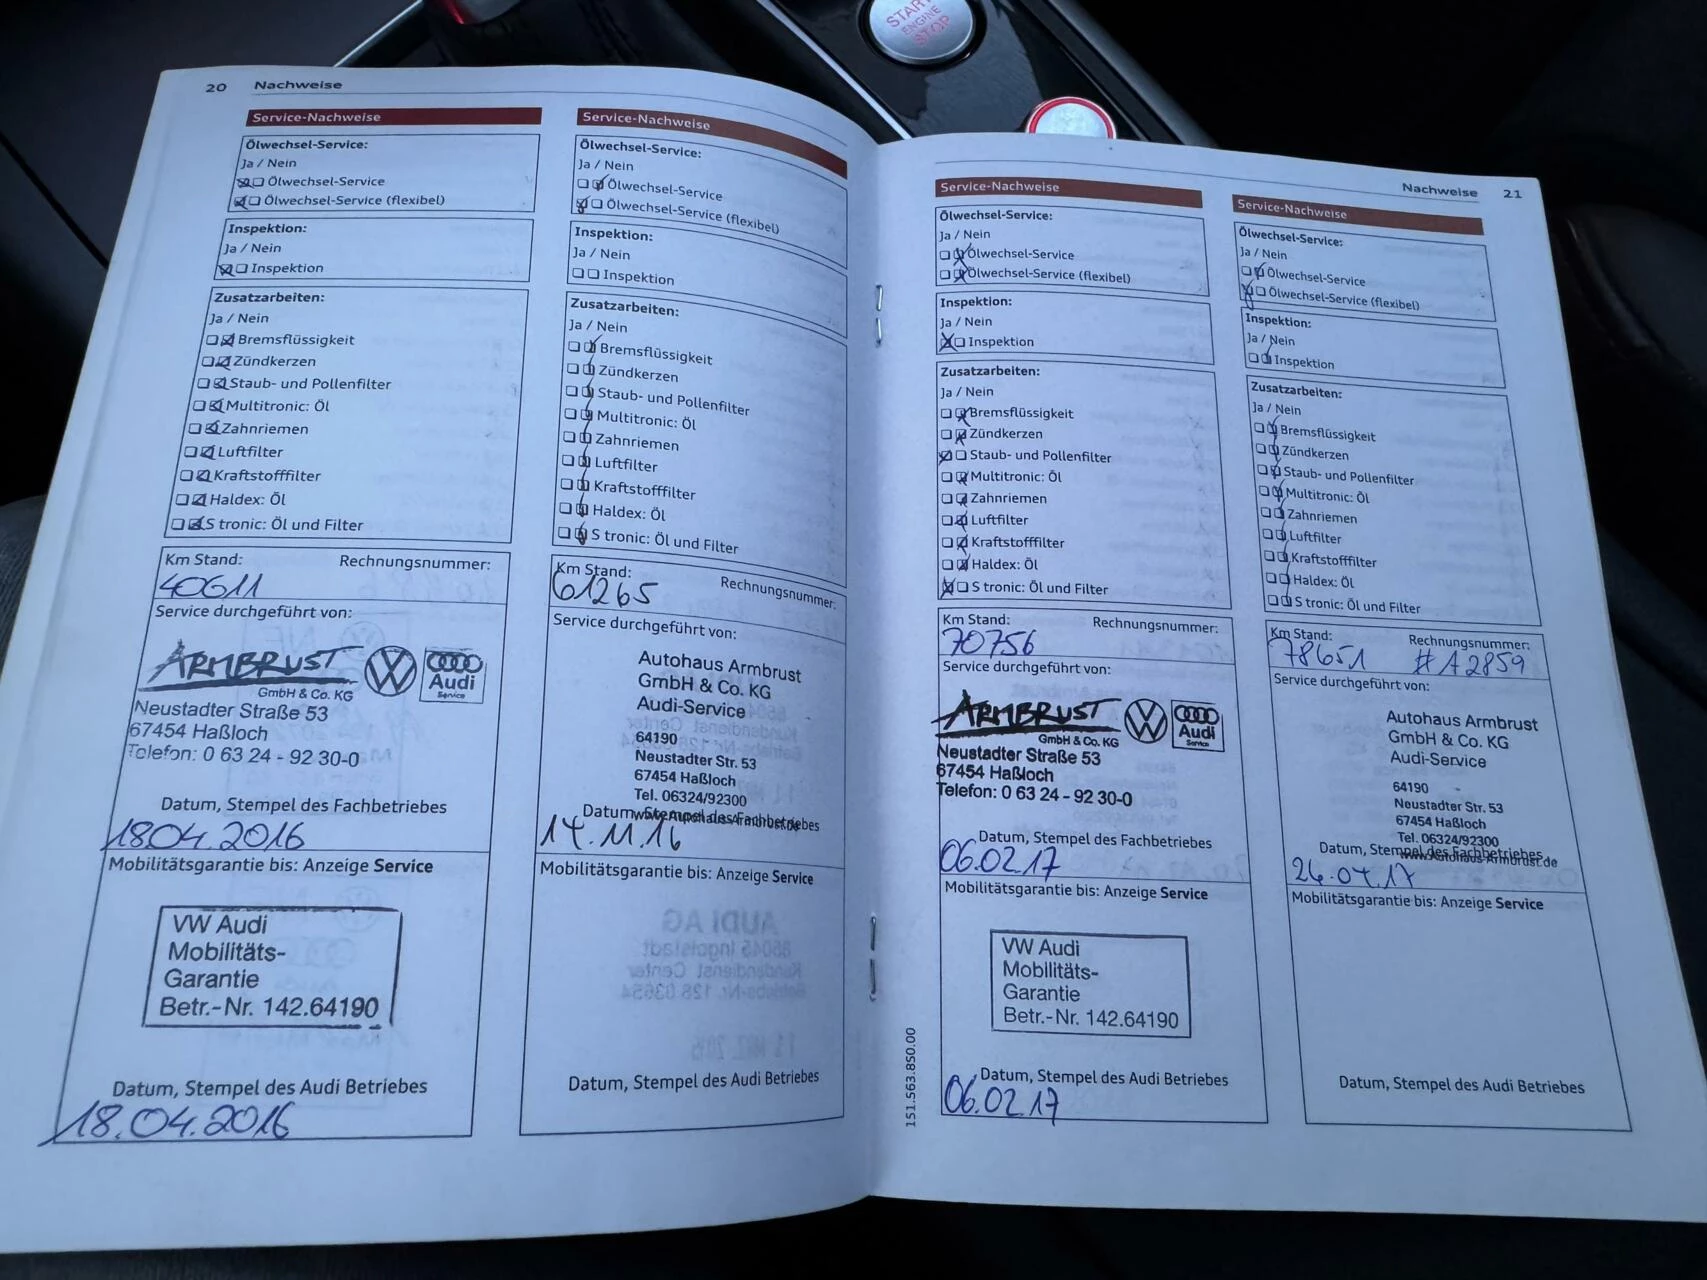 START
ENGINE
STOP
20 Nachweise
Service-Nachweise
Ölwechsel-Service:
Ja / Nein
Ölwechsel-Service
Ölwechsel-Service (flexibel)
Inspektion:
Ja / Nein
Inspektion
Zusatzarbeiten:
Ja / Nein
Bremsflüssigkeit
Zündkerzen
Staub- und Pollenfilter
Multitronic: Öl
Zahnriemen
Luftfilter
Kraftstofffilter
Haldex: Öl
S tronic: Öl und Filter
Km Stand: Rechnungsnummer:
40611
Service durchgeführt von:
ARMBRUST
GmbH & Co. KG
Audi
Service
Neustadter Straße 53
67454 Haßloch
Telefon: 0 63 24 - 92 30-0
Datum, Stempel des Fachbetriebes
18.04.2016
Mobilitätsgarantie bis: Anzeige Service
VW Audi
Mobilitäts-
Garantie
Betr.-Nr. 142.64190
Datum, Stempel des Audi Betriebes
18.04.2016
Service-Nachweise
Ölwechsel-Service:
Ja / Nein
Ölwechsel-Service
Ölwechsel-Service (flexibel)
Inspektion:
Ja / Nein
Inspektion
Zusatzarbeiten:
Ja / Nein
Bremsflüssigkeit
Zündkerzen
Staub- und Pollenfilter
Multitronic: Öl
Zahnriemen
Luftfilter
Kraftstofffilter
Haldex: Öl
S tronic: Öl und Filter
Km Stand: Rechnungsnummer:
61265
Service durchgeführt von:
Autohaus Armbrust
GmbH & Co. KG
Audi-Service
64190
Neustadter Str. 53
67454 Haßloch
Tel. 06324/92300
www.Autohaus-Armbrust.de
Datum, Stempel des Fachbetriebes
14.11.16
Mobilitätsgarantie bis: Anzeige Service
Datum, Stempel des Audi Betriebes
Nachweise 21
Service-Nachweise
Ölwechsel-Service:
Ja / Nein
Ölwechsel-Service
Ölwechsel-Service (flexibel)
Inspektion:
Ja / Nein
Inspektion
Zusatzarbeiten:
Ja / Nein
Bremsflüssigkeit
Zündkerzen
Staub- und Pollenfilter
Multitronic: Öl
Zahnriemen
Luftfilter
Kraftstofffilter
Haldex: Öl
S tronic: Öl und Filter
Km Stand: Rechnungsnummer:
70756
Service durchgeführt von:
ARMBRUST
GmbH & Co. KG
Audi
Service
Neustadter Straße 53
67454 Haßloch
Telefon: 0 63 24 - 92 30-0
Datum, Stempel des Fachbetriebes
06.02.17
Mobilitätsgarantie bis: Anzeige Service
VW Audi
Mobilitäts-
Garantie
Betr.-Nr. 142.64190
Datum, Stempel des Audi Betriebes
06.02.17
151.563.850.00
Service-Nachweise
Ölwechsel-Service:
Ja / Nein
Ölwechsel-Service
Ölwechsel-Service (flexibel)
Inspektion:
Ja / Nein
Inspektion
Zusatzarbeiten:
Ja / Nein
Bremsflüssigkeit
Zündkerzen
Staub- und Pollenfilter
Multitronic: Öl
Zahnriemen
Luftfilter
Kraftstofffilter
Haldex: Öl
S tronic: Öl und Filter
Km Stand: Rechnungsnummer:
78651 #A2859
Service durchgeführt von:
Autohaus Armbrust
GmbH & Co. KG
Audi-Service
64190
Neustadter Str. 53
67454 Haßloch
Tel. 06324/92300
www.Autohaus-Armbrust.de
Datum, Stempel des Fachbetriebes
26.04.17
Mobilitätsgarantie bis: Anzeige Service
Datum, Stempel des Audi Betriebes